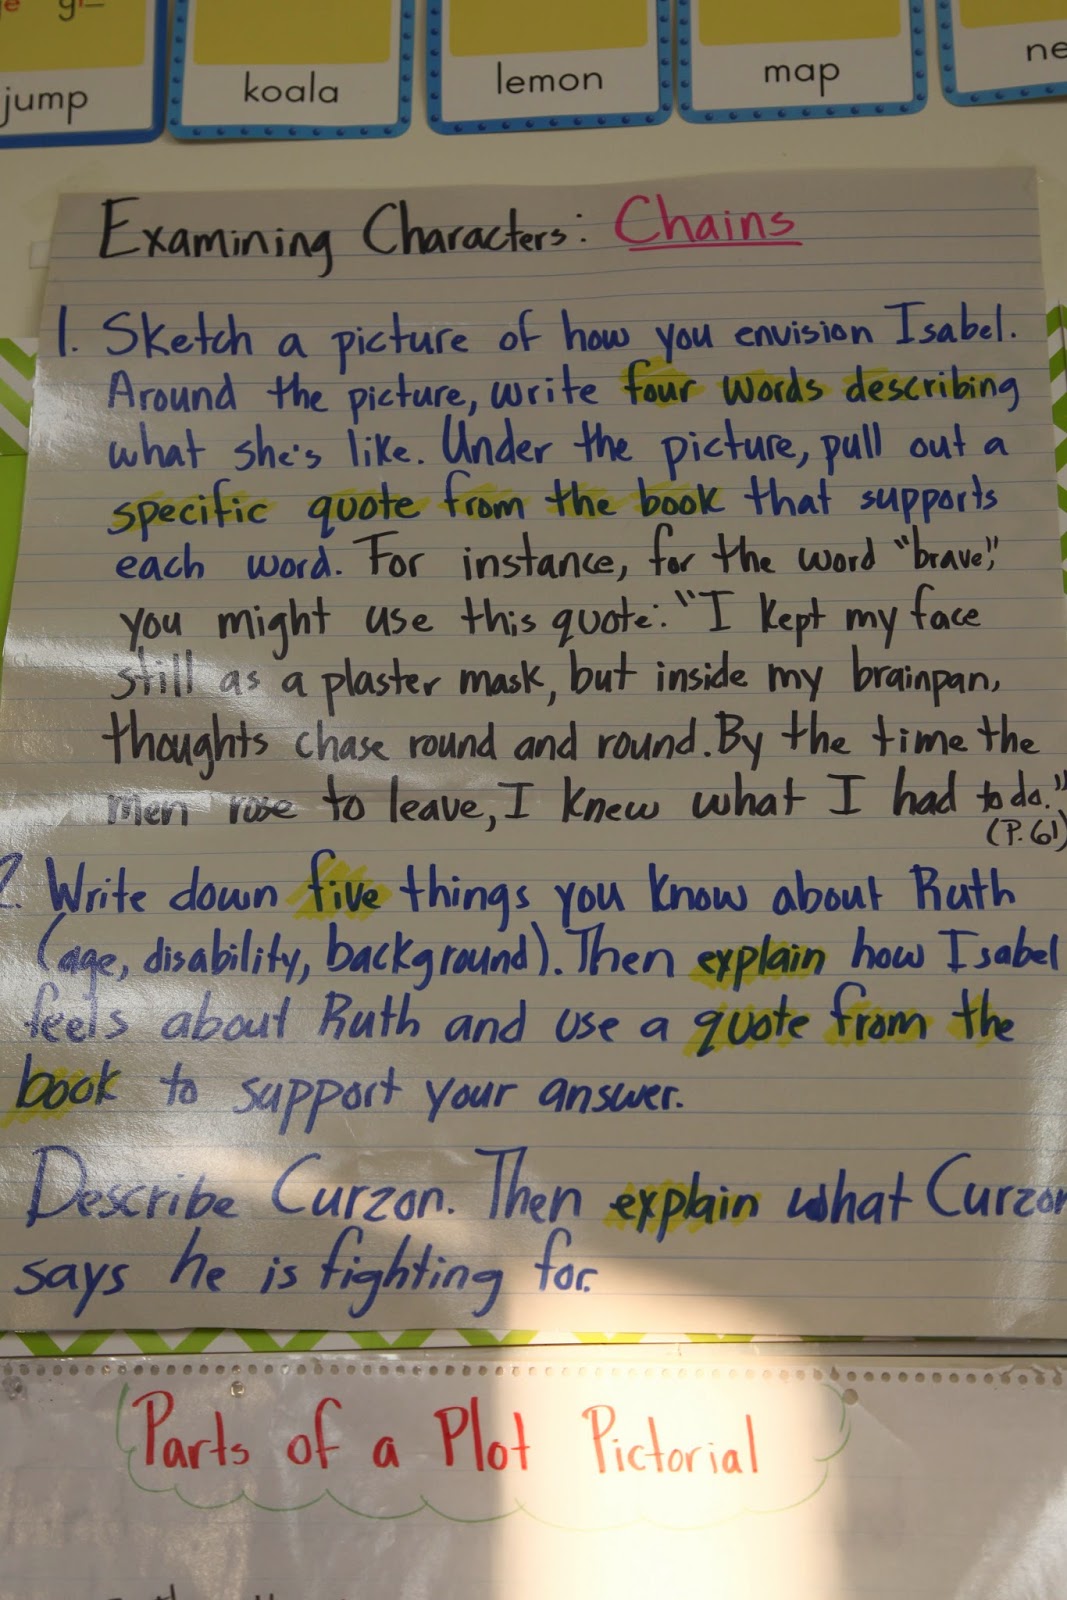 jump koala lemon map ne
Examining Characters: Chains
1. Sketch a picture of how you envision Isabel.
Around the picture, write four words describing
what she's like. Under the picture, pull out a
specific quote from the book that supports
each word. For instance, for the word "brave,"
you might use this quote: "I kept my face
still as a plaster mask, but inside my brainpan,
thoughts chase round and round. By the time the
men rose to leave, I knew what I had to do."
(P. 61)
2. Write down five things you know about Ruth
(age, disability, background). Then explain how Isabel
feels about Ruth and use a quote from the
book to support your answer.
Describe Curzon. Then explain what Curzon
says he is fighting for.
Parts of a Plot Pictorial